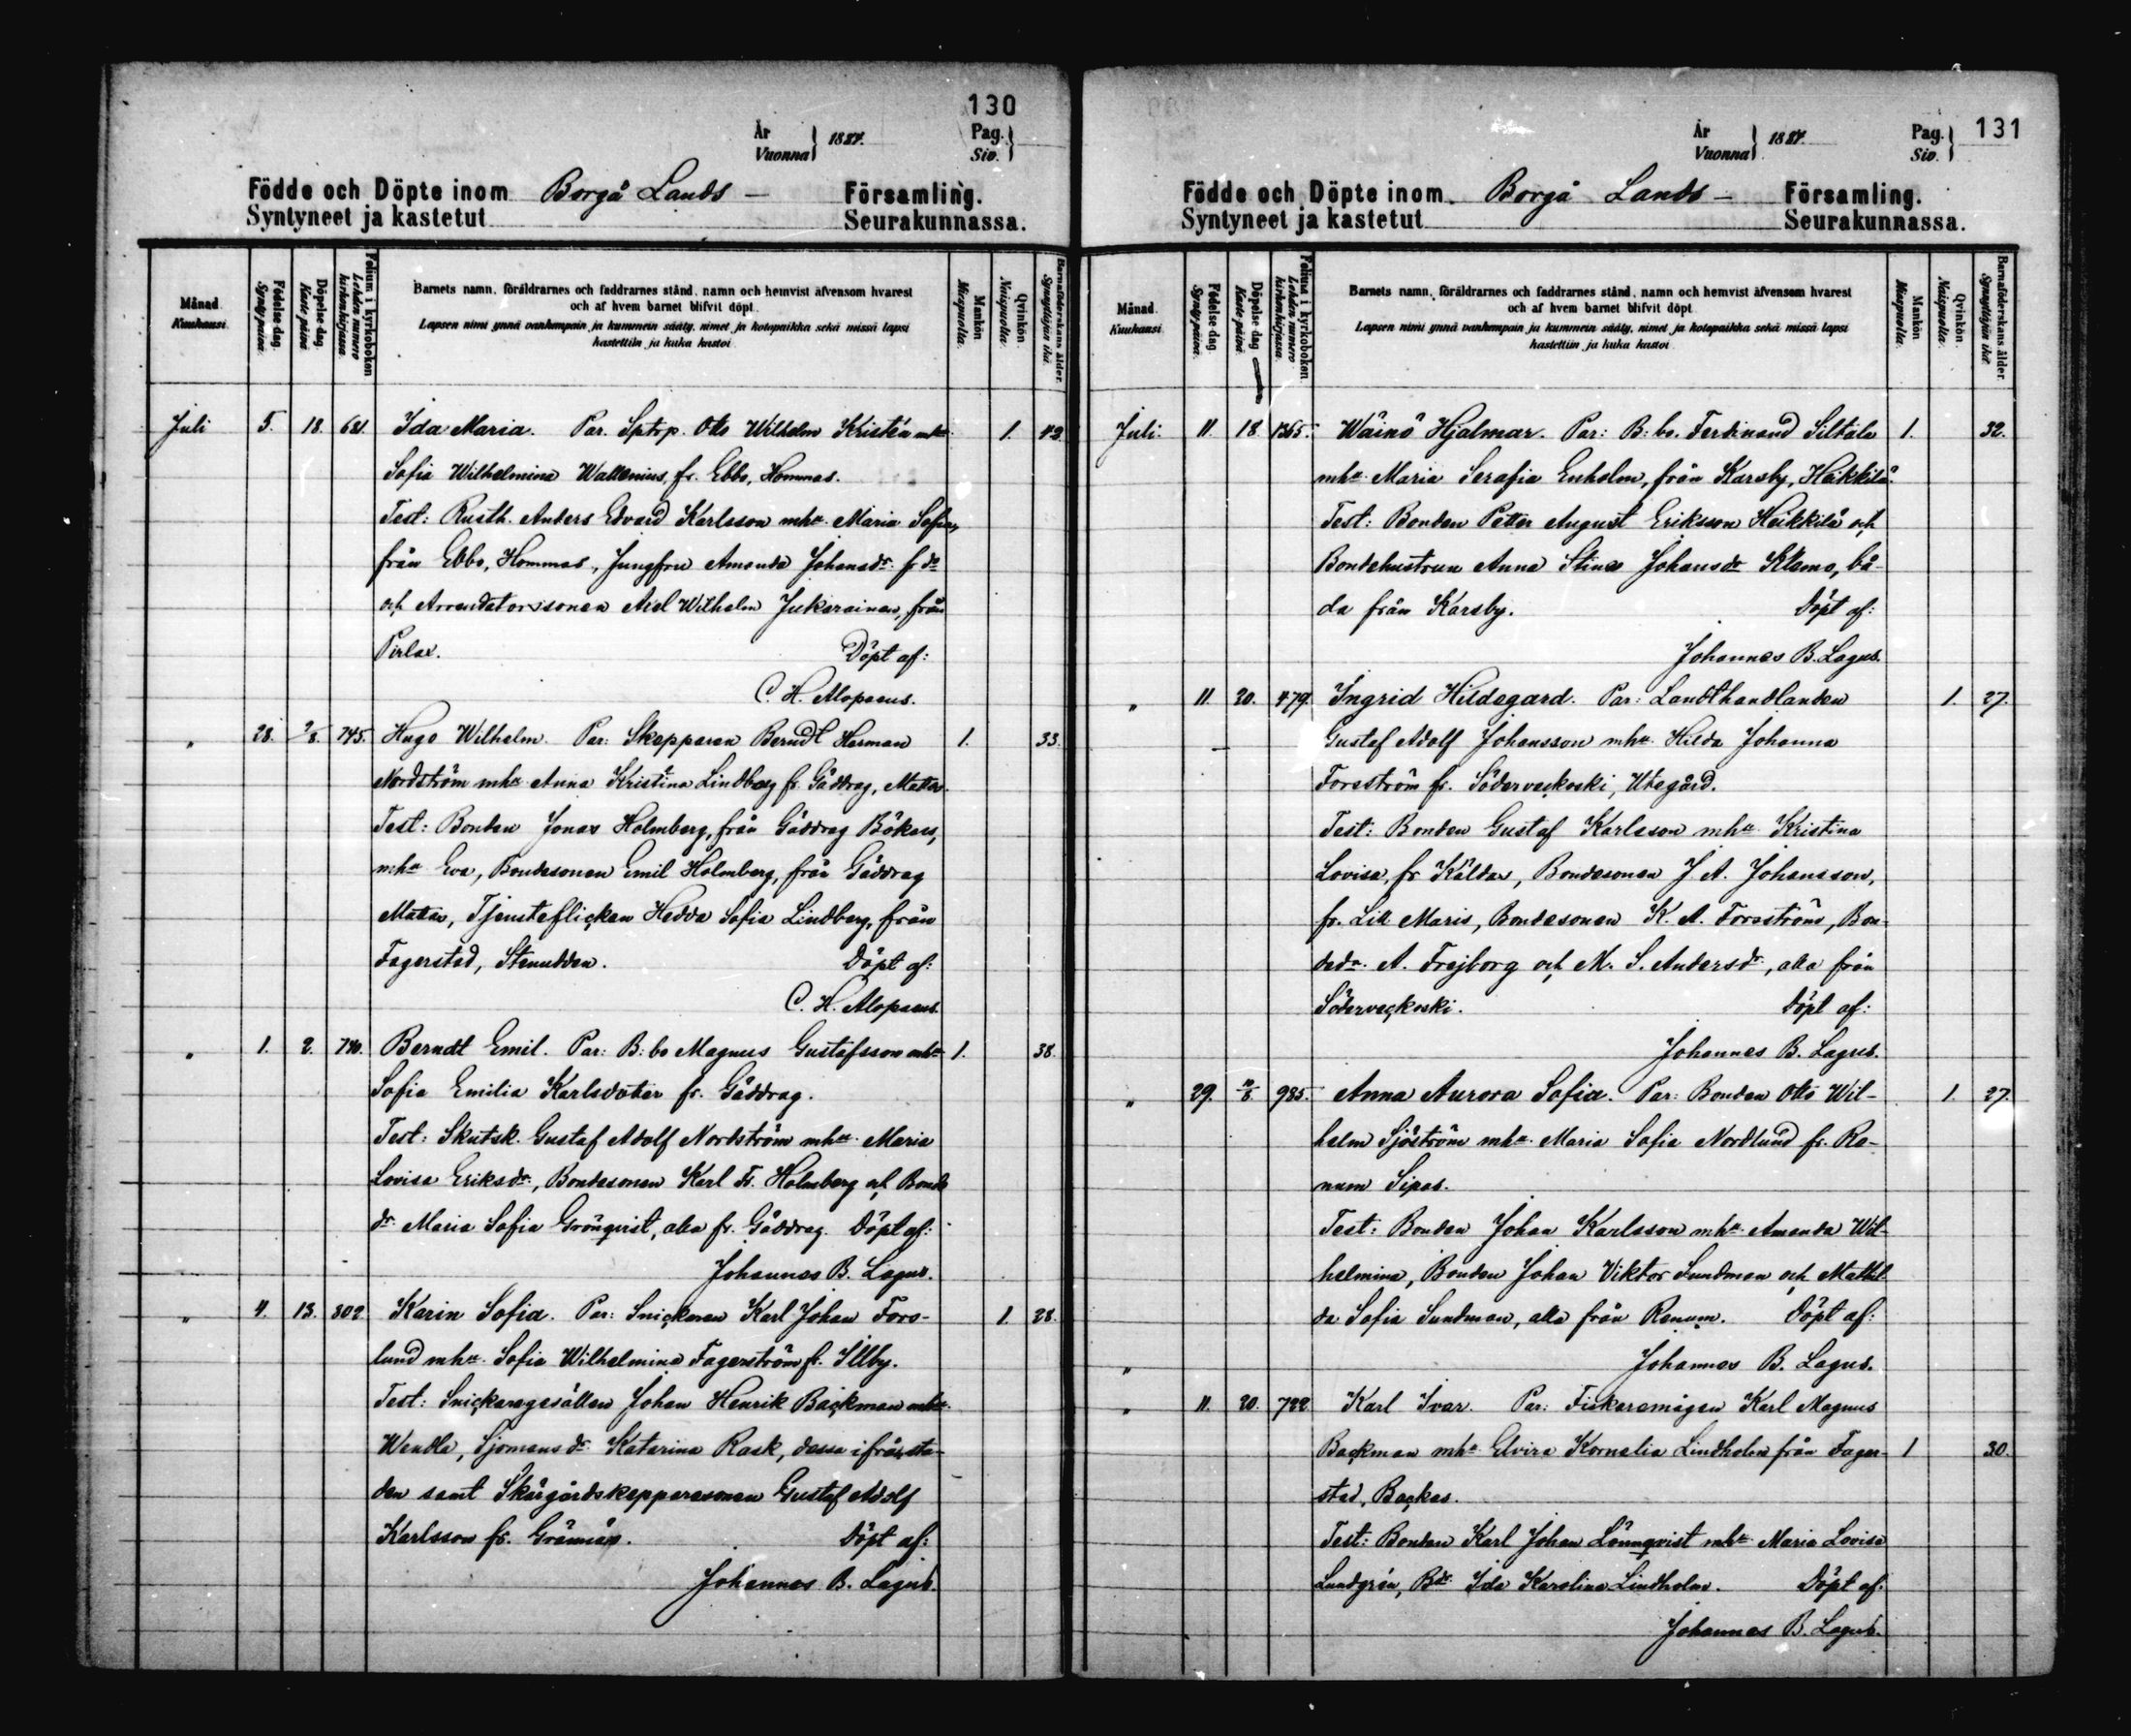 130
År
Vuonna } 1887.
Pag.
Siv. }
Födde och Döpte inom Borgå Lands — Församling.
Syntyneet ja kastetut Seurakunnassa.
Månad. Kuukausi.
Födelse-dag. Syntypäivä.
Döpelse-dag. Kastepäivä
Folium i kyrkoboken Lehden numero kirkonkirjassa.
Barnets namn, föräldrarnes och faddrarnes stånd, namn och hemvist äfvensom hvarest
och af hvem barnet blifvit döpt.
Lapsen nimi ynnä vanhempain ja kummein sääty, nimet ja kotopaikka sekä missä lapsi
kastettiin ja kuka kastoi.
Mankön Miespuolia.
Qvinkön. Naispuolia.
Barnaföderskans ålder. Synnyttäjän ikä.
Juli 5. 18. 681. Ida Maria. Par. Sptorp. Otto Wilhelm Kristén mha 1. 42.
Sofia Wilhelmina Wallenius, fr. Ebbo, Hommas.
Test: Rusth. Anders Edvard Karlsson mha Maria Sofia,
från Ebbo, Hommas, Jungfru Amanda Johansdr. fr do
och Arrendatorssonen Axel Wilhelm Jukarainen, från
Pirlax. Döpt af:
C. H. Alopaeus.
" 28. 2/8. 745. Hugo Wilhelm. Par: Skepparen Berndt Herman 1. 33.
Nordström mha Anna Kristina Lindberg fr. Gäddrag, Mattas.
Test: Bonden Jonas Holmberg, från Gäddrag Bökars,
mha Eva, Bondesonen Emil Holmberg, från Gäddrag
Mattas, Tjensteflickan Hedda Sofia Lindberg, från
Fagersta, Stenudden. Döpt af:
C. H. Alopaeus.
" 1. 2. 740. Berndt Emil. Par: B:bo Magnus Gustafsson mha 1. 38.
Sofia Emilia Karlsdotter fr. Gäddrag.
Test: Skutsk. Gustaf Adolf Nordström mha Maria
Lovisa Eriksdr., Bondesonen Karl Fr. Holmberg och Bonde
dr. Maria Sofia Grönqvist, alla fr. Gäddrag. Döpt af:
Johannes B. Lagus.
" 4. 13. 802. Karin Sofia. Par: Snickaren Karl Johan Fors- 1. 28.
lund mha Sofia Wilhelmina Fagerström fr. Illby.
Test: Snickaregesällen Johan Henrik Backman mha
Wendla, Sjömansdr. Katarina Rask, dessa ifrån sta-
den samt Skärgårdskepparesonen Gustaf Adolf
Karlsson fr. Grännäs. Döpt af:
Johannes B. Lagus.
131
År
Vuonna } 1887.
Pag.
Siv. }
Födde och Döpte inom Borgå Lands — Församling.
Syntyneet ja kastetut Seurakunnassa.
Månad. Kuukausi.
Födelse-dag. Syntypäivä.
Döpelse-dag. Kastepäivä.
Folium i kyrkoboken Lehden numero kirkonkirjassa.
Barnets namn, föräldrarnes och faddrarnes stånd, namn och hemvist äfvensom hvarest
och af hvem barnet blifvit döpt.
Lapsen nimi ynnä vanhempain ja kummein sääty, nimet ja kotopaikka sekä missä lapsi
kastettiin ja kuka kastoi.
Mankön Miespuolia.
Qvinkön. Naispuolia.
Barnaföderskans ålder. Synnyttäjän ikä.
Juli 11. 18. 1365. Wäinö Hjalmar. Par: B:bo. Ferdinand Siltala 1. 32.
mha Maria Serafia Enholm, från Karsby, Heikkilä.
Test: Bonden Petter August Eriksson Heikkilä och
Bondehustrun Anna Stina Johansdr Klemo, bå-
da från Karsby. Döpt af:
Johannes B. Lagus.
" 11. 20. 479. Ingrid Hildegard. Par: Landthandlanden 1. 27.
Gustaf Adolf Johansson mha Hilda Johanna
Forsström fr. Söderveckoski, Utegård.
Test: Bonden Gustaf Karlsson mha Kristina
Lovisa, fr. Käldar, Bondesonen J. A. Johansson,
fr. Lill Maris, Bondesonen K. A. Forsström, Bon-
dedr. A. Frejborg och M. S. Andersdr., alla från
Söderveckoski. Döpt af:
Johannes B. Lagus.
" 29. 10/8. 985. Anna Aurora Sofia. Par: Bonden Otto Wil- 1. 27.
helm Sjöström mha Maria Sofia Nordlund fr. Ra-
num Sipas.
Test: Bonden Johan Karlsson mha Amanda Wil-
helmina, Bonden Johan Viktor Sundman och Mathil-
da Sofia Sundman, alla från Ranum. Döpt af:
" Johannes B. Lagus.
" 11. 20. 722. Karl Ivar. Par: Fiskaremågen Karl Magnus
Backman mha Elvira Kornelia Lindholm från Fager- 1 30.
stad, Backas.
Test: Bonden Karl Johan Lönnqvist mha Maria Lovisa
Lundgrén, Bdr. Ida Karolina Lindholm. Döpt af:
Johannes B. Lagus.